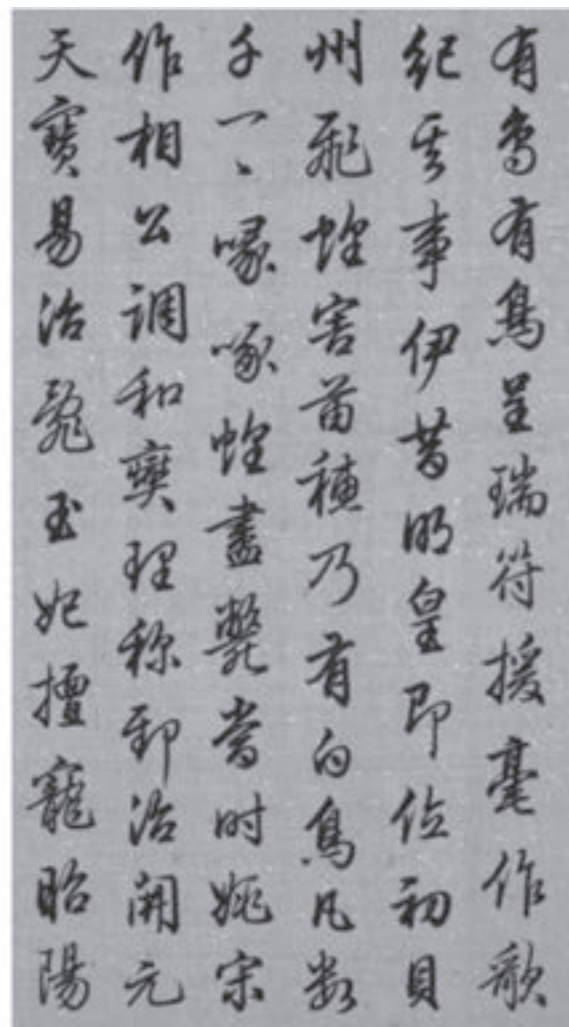 有鸟有鳥呈瑞符援毫作歌
紀其事伊昔明皇即位初貝
州飛蝗害苗穗乃有白鳥凡数
千一一喙啄蝗盡斃當时姚宋
作相公調和爕理称郅治開元
天寳易治亂玉妃擅寵昭陽